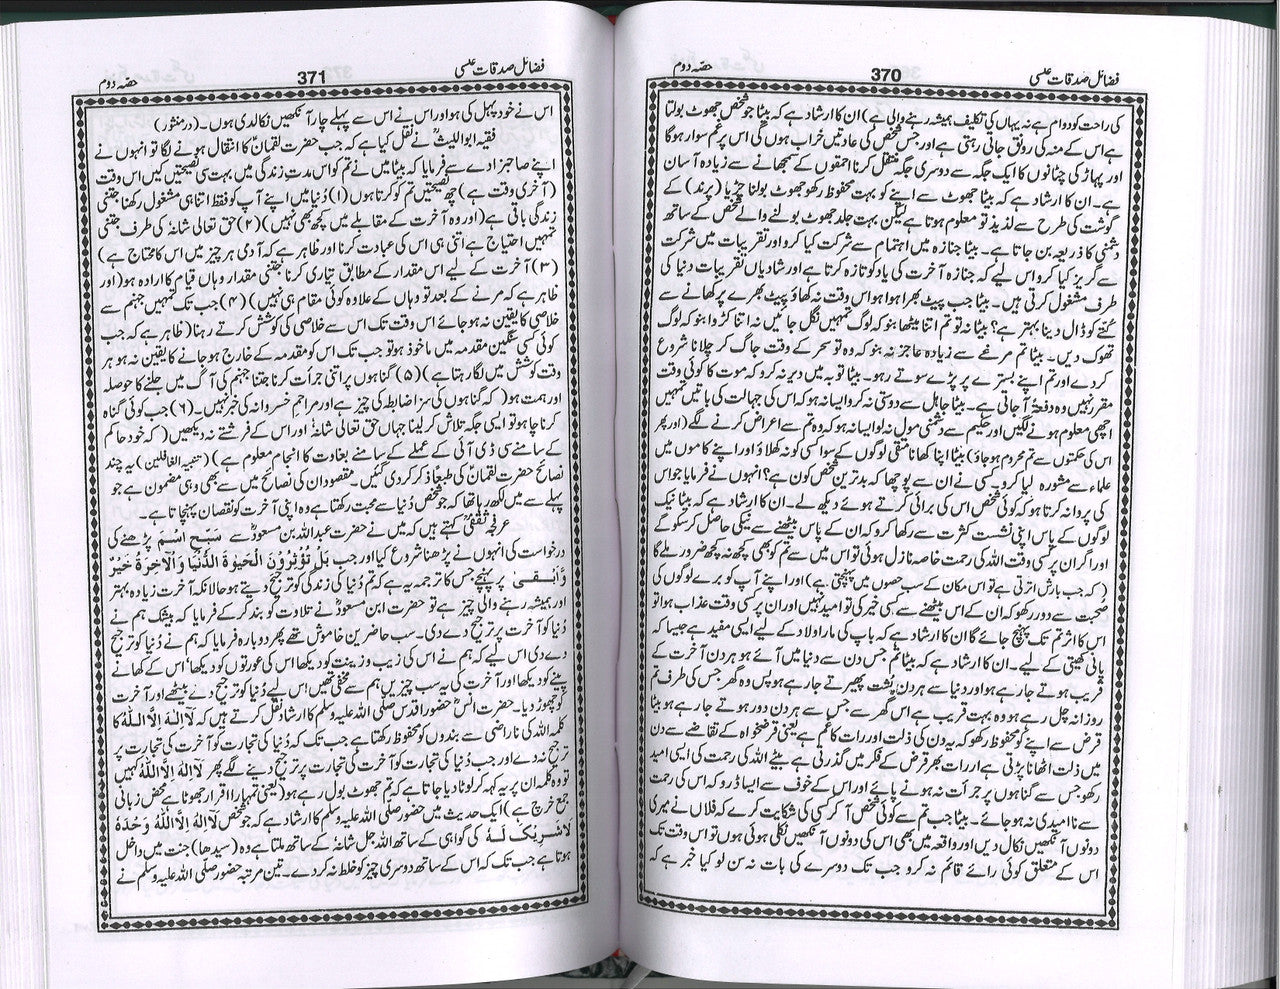 فضائل صدقات عکسی 370 حصّہ دوم
کی راحت کو دوام ہے نہ یہاں کی تکلیف ہمیشہ رہنے والی ہے) ان کا ارشاد ہے کہ بیٹا جو شخص جھوٹ بولتا
ہے اس کے منہ کی رونق جاتی رہتی ہے اور جس شخص کی عادتیں خراب ہوں گی اس پر غم سوار ہوگا
اور پہاڑ کی چٹانوں کا ایک جگہ سے دوسری جگہ منتقل کرنا احمقوں کے سمجھانے سے زیادہ آسان
ہے۔ ان کا ارشاد ہے کہ بیٹا جھوٹ سے اپنے کو بہت محفوظ رکھو جھوٹ بولنا چڑیا (پرند) کے
گوشت کی طرح سے لذیذ تو معلوم ہوتا ہے لیکن بہت جلد جھوٹ بولنے والے شخص کے ساتھ
دشمنی کا ذریعہ بن جاتا ہے۔ بیٹا جنازہ میں اہتمام سے شرکت کیا کرو اور تقریبات میں شرکت
سے گریز کیا کرو اس لیے کہ جنازہ آخرت کی یاد کو تازہ کرتا ہے اور شادیاں تقریبات دنیا کی
طرف مشغول کرتی ہیں۔ بیٹا جب پیٹ بھرا ہوا ہو اس وقت نہ کھاؤ پیٹ بھرے پر کھانے سے
کتے کو ڈال دینا بہتر ہے؟ بیٹا نہ تو تم اتنا میٹھا بنو کہ لوگ تمہیں نگل جائیں نہ اتنا کڑوا بنو کہ لوگ
تھوک دیں۔ بیٹا تم مرغے سے زیادہ عاجز نہ بنو کہ وہ تو سحر کے وقت جاگ کر چلانا شروع
کر دے اور تم اپنے بسترے پر پڑے سوتے رہو۔ بیٹا توبہ میں دیر نہ کرو کہ موت کا کوئی وقت
مقرر نہیں وہ دفعۃً آ جاتی ہے۔ بیٹا جاہل سے دوستی نہ کرو ایسا نہ ہو کہ اس کی جہالت کی باتیں تمہیں
اچھی معلوم ہونے لگیں اور حکیم سے دشمنی مول نہ لو ایسا نہ ہو کہ وہ تم سے اعراض کرنے لگے (اور پھر
اس کی حکمتوں سے تم محروم ہو جاؤ) بیٹا اپنا کھانا متقی لوگوں کے سوا کسی کو نہ کھلاؤ اور اپنے کاموں میں
علماء سے مشورہ لیا کرو۔ کسی نے ان سے پوچھا کہ بدترین شخص کون ہے؟ انہوں نے فرمایا جو اس
کی پروا نہ کرتا ہو کہ کوئی شخص اس کی برائی کرتے ہوئے دیکھ لے۔ ان کا ارشاد ہے کہ بیٹا نیک
لوگوں کے پاس اپنی نشست کثرت سے رکھا کرو کہ ان کے پاس بیٹھنے سے نیکی حاصل کر سکو گے
اور اگر ان پر کسی وقت اللہ کی رحمت خاصہ نازل ہوئی تو اس میں سے تم کو بھی کچھ نہ کچھ ضرور ملے گا
(کہ جب بارش اترتی ہے تو اس مکان کے سب حصوں میں پہنچتی ہے) اور اپنے آپ کو برے لوگوں کی
صحبت سے دور رکھو کہ ان کے پاس بیٹھنے سے کسی خیر کی تو امید نہیں اور ان پر کسی وقت عذاب ہوا تو
اس کا اثر تم تک پہنچ جائے گا ان کا ارشاد ہے کہ باپ کی مار اولاد کے لیے ایسی مفید ہے جیسا کہ
پانی کھیتی کے لیے۔ ان کا ارشاد ہے کہ بیٹا تم جس دن سے دنیا میں آئے ہو ہر دن آخرت کے
قریب ہوتے جا رہے ہو اور دنیا سے ہر دن پشت پھیرتے جا رہے ہو پس وہ گھر جس کی طرف تم
روزانہ چل رہے ہو وہ بہت قریب ہے اس گھر سے جس سے ہر دن دور ہوتے جا رہے ہو بیٹا
قرض سے اپنے کو محفوظ رکھو کہ یہ دن کی ذلت اور رات کا غم ہے یعنی قرض خواہ کے تقاضے سے دن
میں ذلت اٹھانا پڑتی ہے اور رات بھر قرض کے فکر میں گذرتی ہے بیٹے اللہ کی رحمت کی ایسی امید
رکھو جس سے گناہوں پر جرأت نہ ہونے پائے اور اس کے خوف سے ایسا ڈرو کہ اس کی رحمت
سے نا امیدی نہ ہو جائے۔ بیٹا جب تم سے کوئی شخص آ کر کسی کی شکایت کرے کہ فلاں نے میری
دونوں آنکھیں نکال دیں اور واقعہ میں بھی اس کی دونوں آنکھیں نکلی ہوئی ہوں تو اس وقت تک
اس کے متعلق کوئی رائے قائم نہ کرو جب تک دوسرے کی بات نہ سن لو کیا خبر ہے کہ
فضائل صدقات عکسی 371 حصّہ دوم
اس نے خود پہل کی ہو اور اس نے اس سے پہلے چار آنکھیں نکال دی ہوں۔ (درمنثور)
فقیہ ابواللیثؒ نے نقل کیا ہے کہ جب حضرت لقمانؑ کا انتقال ہونے لگا تو انہوں نے
اپنے صاحبزادے سے فرمایا کہ بیٹا میں نے تم کو اس مدت زندگی میں بہت سی نصیحتیں کیں اس وقت
(آخری وقت ہے) چھ نصیحتیں تم کو کرتا ہوں (۱) دُنیا میں اپنے آپ کو فقط اتنا ہی مشغول رکھنا جتنی
زندگی باقی ہے (اور وہ آخرت کے مقابلے میں کچھ بھی نہیں) (۲) حق تعالیٰ شانہٗ کی طرف جتنی
تمہیں احتیاج ہے اتنی ہی اس کی عبادت کرنا اور ظاہر ہے کہ آدمی ہر چیز میں اس کا محتاج ہے)
(۳) آخرت کے لیے اس مقدار کے مطابق تیاری کرنا جتنی مقدار وہاں قیام کا ارادہ ہو (اور
ظاہر ہے کہ مرنے کے بعد تو وہاں کے علاوہ کوئی مقام ہی نہیں) (۴) جب تک تمہیں جہنم سے
خلاصی کا یقین نہ ہو جائے اس وقت تک اس سے خلاصی کی کوشش کرتے رہنا (ظاہر ہے کہ جب
کوئی کسی سنگین مقدمہ میں ماخوذ ہو تو جب تک اس کو مقدمہ کے خارج ہو جانے کا یقین نہ ہو ہر
وقت کوشش میں لگا رہتا ہے) (۵) گناہوں پر اتنی جرأت کرنا جتنا جہنم کی آگ میں جلنے کا حوصلہ
اور ہمت ہو (کہ گناہوں کی سزا ضابطہ کی چیز ہے اور مراحم خسروانہ کی خبر نہیں۔ (۶) جب کوئی گناہ
کرنا چاہو تو ایسی جگہ تلاش کر لینا جہاں حق تعالیٰ شانہٗ اور اس کے فرشتے نہ دیکھیں (کہ خود حاکم
کے سامنے سی ڈی آئی کے عملے کے سامنے بغاوت کا انجام معلوم ہے) (تنبیہ الغافلین) یہ چند
نصائح حضرت لقمانؑ کی طبعاً ذکر کر دی گئیں۔ مقصود ان کی نصائح میں سے بھی وہی مضمون ہے جو
پہلے سے میں لکھ رہا تھا کہ جو شخص دُنیا سے محبت رکھتا ہے وہ اپنی آخرت کو نقصان پہنچاتا ہے۔
عرفجہ ثقفیؒ کہتے ہیں کہ میں نے حضرت عبداللہ بن مسعودؓ سے سَبِّحِ اسْمَ پڑھنے کی
درخواست کی انہوں نے پڑھنا شروع کیا اور جب بَلْ تُؤْثِرُوْنَ الْحَیٰوۃَ الدُّنْیَا وَالْاٰخِرَۃُ خَیْرٌ
وَّاَبْقٰی پر پہنچے جس کا ترجمہ یہ ہے کہ تم دُنیا کی زندگی کو ترجیح دیتے ہو حالانکہ آخرت زیادہ بہتر
اور ہمیشہ رہنے والی چیز ہے تو حضرت ابن مسعودؓ نے تلاوت کو بند کر کے فرمایا کہ بیشک ہم نے
دُنیا کو آخرت پر ترجیح دے دی۔ سب حاضرین خاموش تھے پھر دوبارہ فرمایا کہ ہم نے دُنیا کو ترجیح
دے دی اس لیے کہ ہم نے اس کی زیب و زینت کو دیکھا اس کی عورتوں کو دیکھا، اس کے کھانے
پینے کو دیکھا اور آخرت کی یہ سب چیزیں ہم سے مخفی تھیں! اس لیے دُنیا کو ترجیح دے بیٹھے اور آخرت
کو چھوڑ دیا۔ حضرت انسؓ حضور اقدس صلی اللہ علیہ وسلم کا ارشاد نقل کرتے ہیں کہ لَآ اِلٰہَ اِلَّا اللّٰہُ کا
کلمہ اللہ کی ناراضی سے بندوں کو محفوظ رکھتا ہے جب تک کہ دُنیا کی تجارت کو آخرت کی تجارت پر
ترجیح نہ دے اور جب دُنیا کی تجارت کو آخرت کی تجارت پر ترجیح دینے لگے پھر لَآ اِلٰہَ اِلَّا اللّٰہُ کہیں
تو وہ کلمہ ان پر یہ کہہ کر لوٹا دیا جاتا ہے کہ تم جھوٹ بول رہے ہو (یعنی تمہارا اقرار جھوٹا ہے محض زبانی
جمع خرچ ہے) ایک حدیث میں حضور صلی اللہ علیہ وسلم کا ارشاد ہے کہ جو شخص لَآ اِلٰہَ اِلَّا اللّٰہُ وَحْدَہٗ
لَاشَرِیْکَ لَہٗ کی گواہی کے ساتھ اللہ جل شانہٗ کے ساتھ ملتا ہے وہ (سیدھا) جنت میں داخل
ہوتا ہے جب تک کہ اس کے ساتھ دوسری چیز کو خلط نہ کر دے۔ تین مرتبہ حضور صلی اللہ علیہ وسلم نے